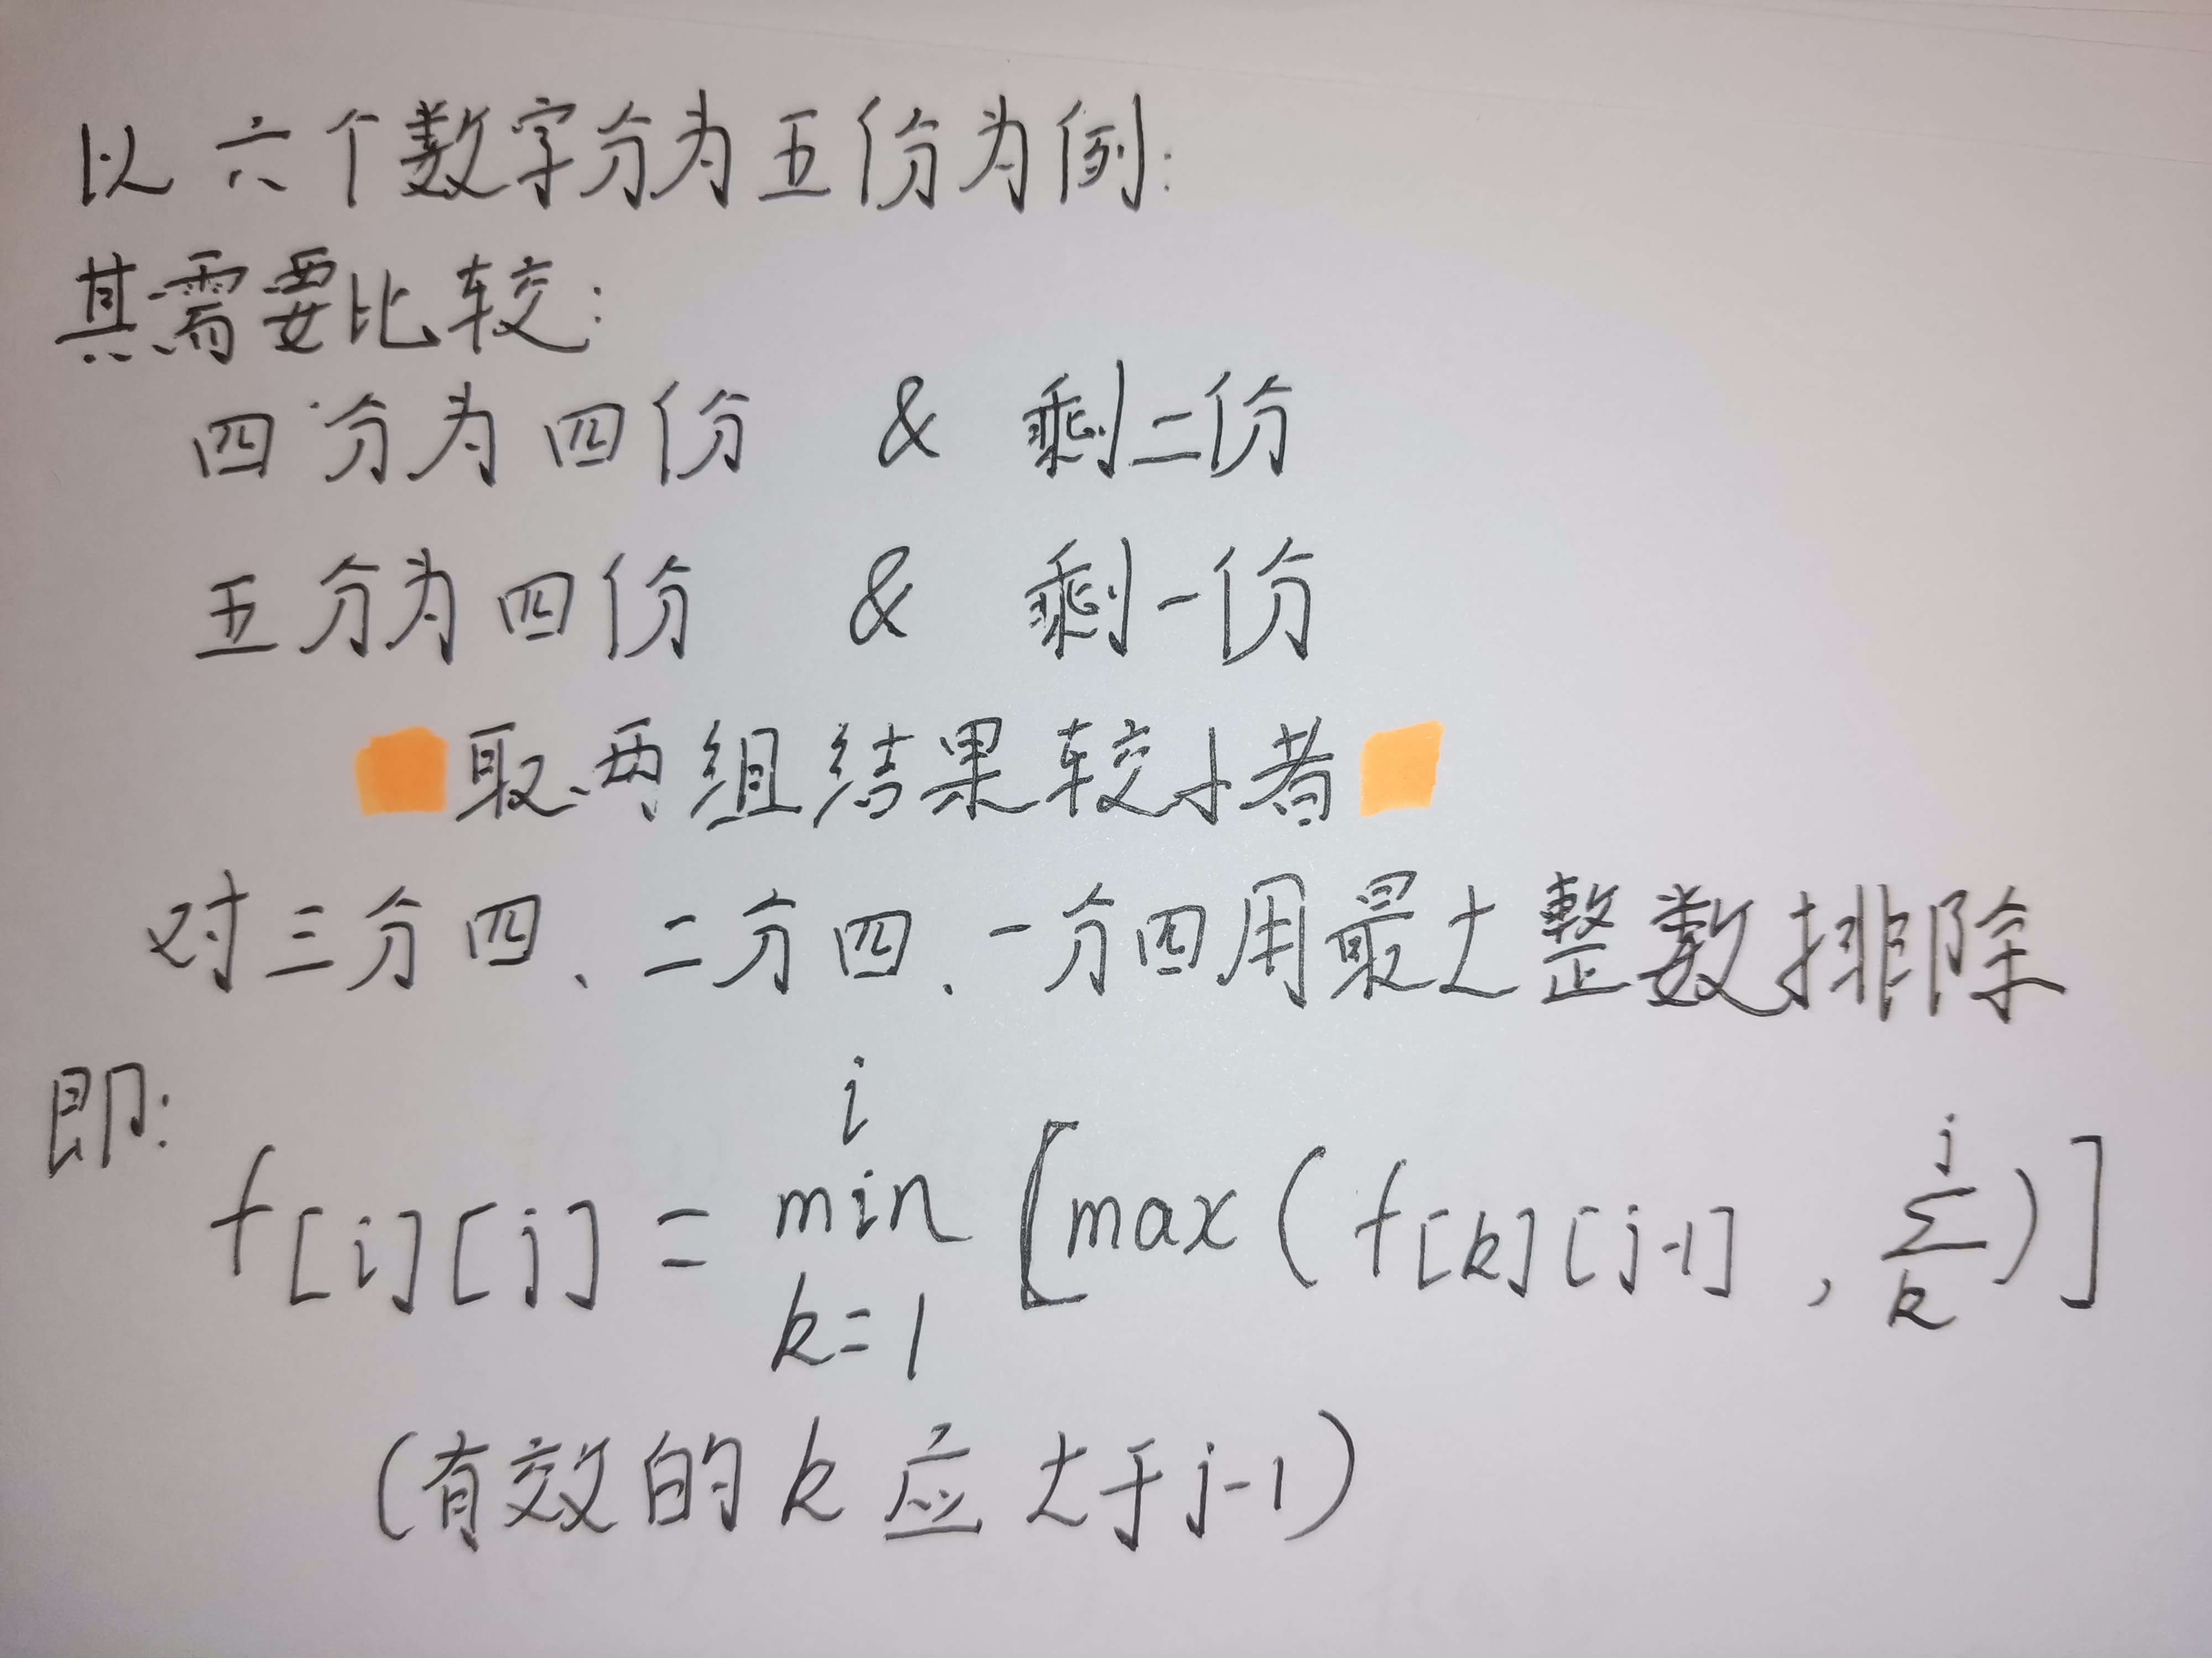 以六个数字分为五份为例:
其需要比较:
四分为四份 & 剩二份
五分为四份 & 剩一份
取两组结果较小者
对三分四、二分四、一分四用最大整数排除
即:
f[i][j] = min_{k=1}^{i} [max(f[k][j-1], \sum_{k}^{i})]
(有效的k应大于j-1)